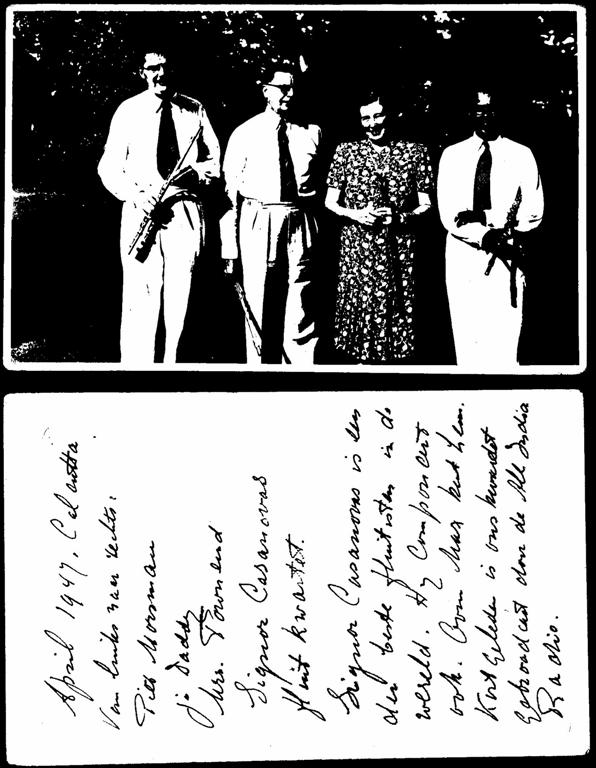 April 1947, Calcutta.
Van links naar rechts:
Piet Moorman
je Daddy
Mrs. Townend
Signor Casanovas
fluit kwartet.
Signor Casanovas is een
der beste fluitisten in de
wereld. Hy componeert
ook. Oom Max kent hem.
Kort geleden is ons kwartet
gebroadcast door de All India
Radio.